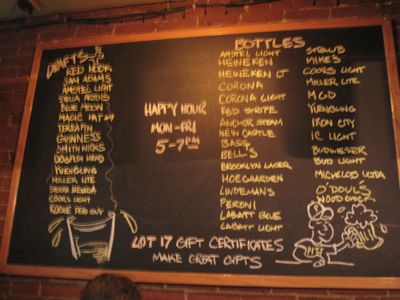 DRAFTS
RED HOOK
SAM ADAMS
AMSTEL LIGHT
STELLA ARTOIS
BLUE MOON
MAGIC HAT #9
TERRAPIN
GUINNESS
SMITHWICKS
DOGFISH HEAD
YUENGLING
MILLER LITE
SIERRA NEVADA
COORS LIGHT
ROGUE DEAD GUY
HAPPY HOUR
MON-FRI
5-7PM
BOTTLES
AMSTEL LIGHT
HEINEKEN
HEINEKEN LT
CORONA
CORONA LIGHT
RED STRIPE
ANCHOR STEAM
NEW CASTLE
BASS
BELL'S
BROOKLYN LAGER
HOEGAARDEN
LINDEMANS
PERONI
LABATT BLUE
LABATT LIGHT
STRAUB
MIKE'S
COORS LIGHT
MILLER LITE
MGD
YUENGLING
IRON CITY
IC LIGHT
BUDWEISER
BUD LIGHT
MICHELOB ULTRA
O'DOUL'S
WOODCHUCK
LOT 17 GIFT CERTIFICATES
MAKE GREAT GIFTS